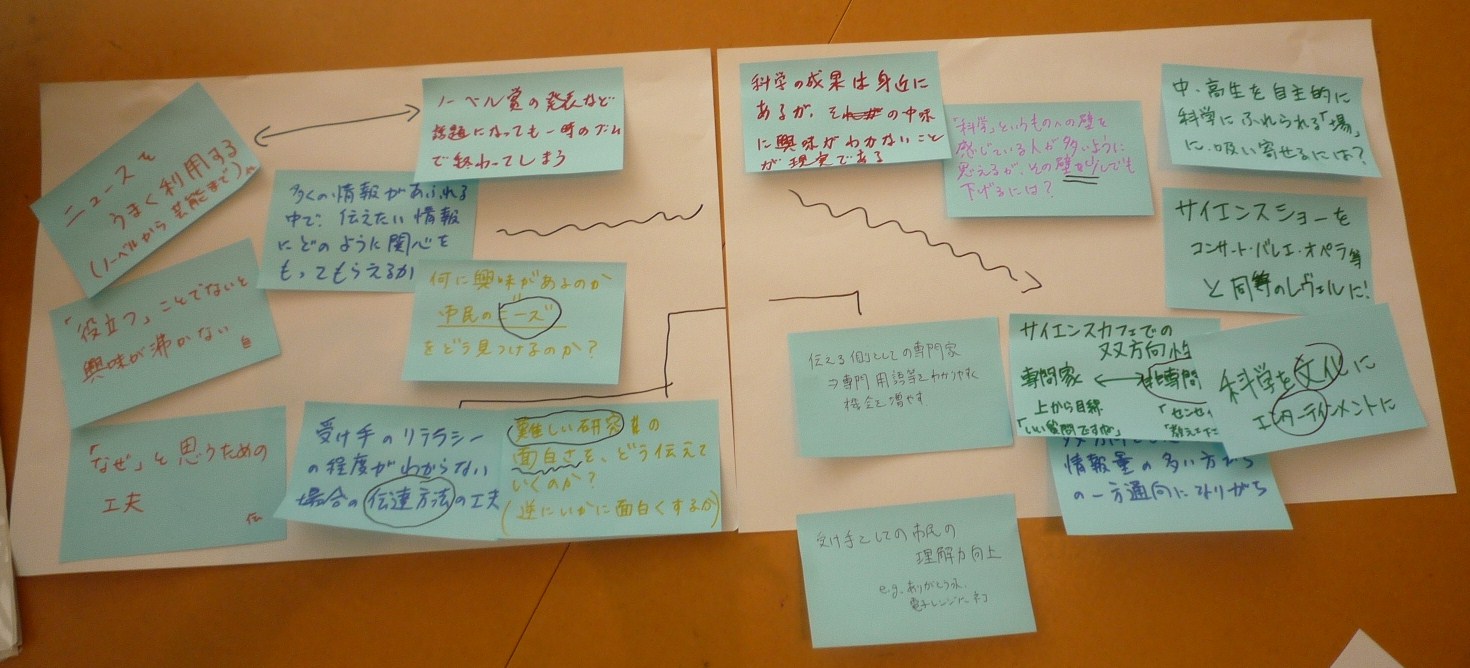 ニュースを
うまく利用する
(ノーベルから芸能まで)
ノーベル賞の発表など
話題になっても一時のブーム
で終わってしまう
多くの情報があふれる
中で、伝えたい情報
にどのように関心を
もってもらえるか
「役立つ」ことでないと
興味が沸かない
何に興味があるのか
市民のニーズ
をどう見つけるのか?
「なぜ」と思うための
工夫
伝
受け手のリテラシー
の程度がわからない
場合の伝達方法の工夫
難しい研究の
面白さを、どう伝えて
いくのか?
(逆にいかに面白くするか)
科学の成果は身近に
あるが、その中味
に興味がわかないこと
が現実である
「科学」というものへの壁を
感じている人が多いように
思えるが、その壁を少しでも
下げるには?
中・高生を自主的に
科学にふれられる「場」
に吸い寄せるには?
サイエンスショーを
コンサート・バレエ・オペラ等
と同等のレヴェルに!
伝える側としての専門家
⇒専門用語等をわかりやすく
機会を増やす
サイエンスカフェでの
双方向性
専門家 ⟷ 非専門
上から目線
「いい質問ですが」
科学を文化に
エンターテインメントに
情報量の多い方から
の一方通向になりがち
受け手としての市民の
理解力向上
e.g.
電子レンジにネコ